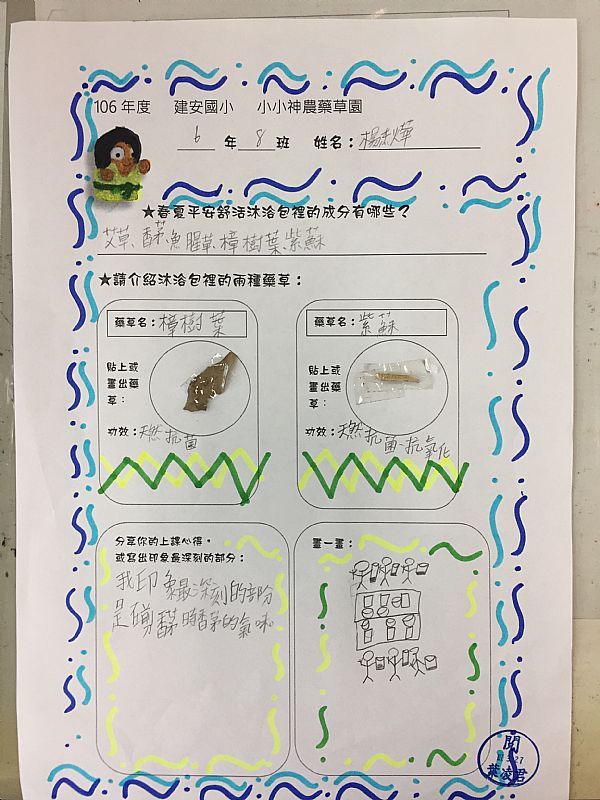 106 年度 建安國小 小小神農藥草園
6 年 8 班 姓名：楊燁
★春夏平安舒活沐浴包裡的成分有哪些？
艾草、香茅、魚腥草、樟樹葉、紫蘇
★請介紹沐浴包裡的兩種藥草：
藥草名：樟樹葉
貼上或
畫出藥
草：
功效：天然抗菌
藥草名：紫蘇
貼上或
畫出藥
草：
功效：天然抗菌、抗氧化
分享你的上課心得，
或寫出印象最深刻的部分：
我印象最深刻的部份
是剪香茅時香茅的氣味
畫一畫：
閱
葉凌君